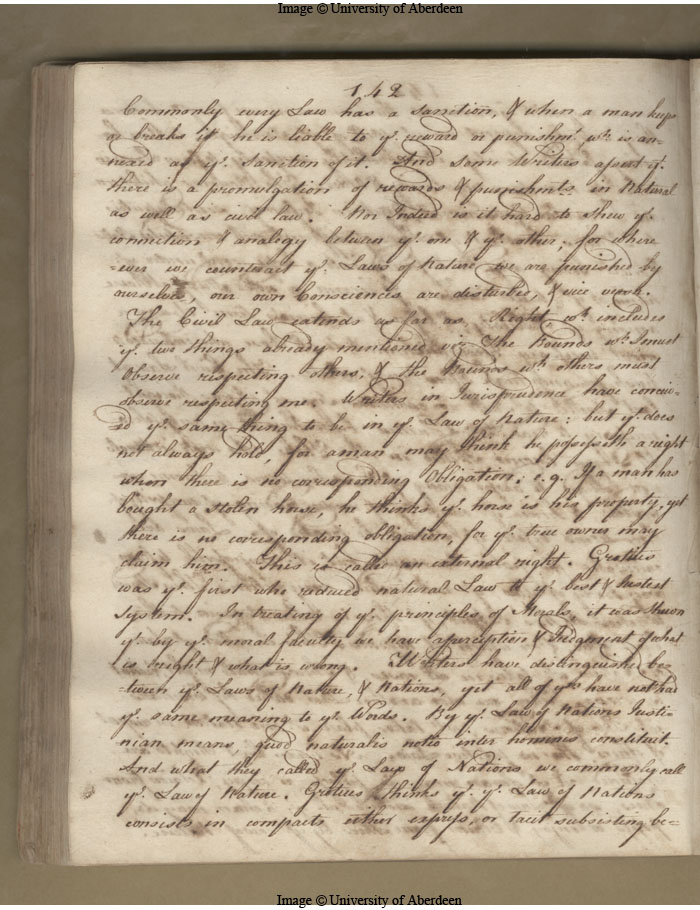 Image © University of Aberdeen
142
Commonly every Law has a sanction, & when a man keeps
or breaks it he is liable to ye. reward or punishmt. wh. is an-
nexed as ye. sanction of it. And some Writers assert yt.
there is a promulgation of rewards & punishments in Natural
as well as civil law. Nor Indeed is it hard to shew ye.
connection & analogy between ye. one & ye. other; for where
=ever we counteract ye. Laws of Nature we are punished by
ourselves, our own Consciences are disturbed, & vice versa.
The Civil Law extends as far as Right, wh. includes
ye. two things already mentioned viz The Bounds wh. I must
Observe respecting others, & the Bounds wh. others must
observe respecting me. Writers in Jurisprudence have conceiv-
ed ye. same thing to be in ye. Law of Nature: but yt. does
not always hold, for a man may think he possesseth a right
when there is no corresponding Obligation; e.g. If a man has
bought a stolen horse, he thinks ye. horse is his property, yet
there is no corresponding obligation, for ye. true owner may
claim him. This is called an external right. Grotius
was ye. first who reduced natural Law to ye. best & justest
system. In treating of ye. principles of Morals, it was shewn
yt. by ye. moral faculty we have a perception & Judgment of what
is right & what is wrong. Writers have distinguished be=
=tween ye. Laws of Nature, & Nations, yet all of ym have not had
ye. same meaning to ye. Words. By ye. Law of Nations Justi=
nian means, quod naturalis ratio inter homines constituit.
And what they called ye. Laws of Nations we commonly call
ye. Law of Nature. Grotius thinks yt. ye. Law of Nations
consists in compacts either express, or tacit subsisting be=
Image © University of Aberdeen